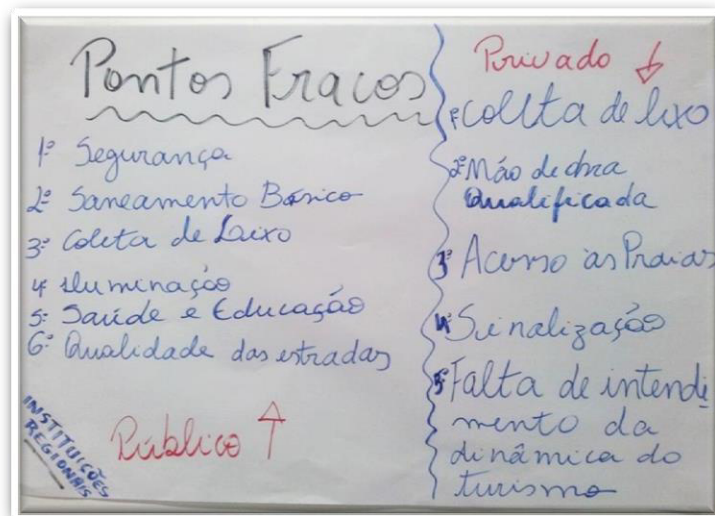 Pontos Fracos
1º Segurança
2º Saneamento Básico
3º Coleta de Lixo
4º Iluminação
5º Saúde e Educação
6º Qualidade das estradas
Público ↑
INSTITUIÇÕES
REGIONAIS
Privado ↓
1º Coleta de lixo
2º Mão de obra
Qualificada
3º Acesso as Praias
4º Sinalização
5º Falta de intendi
mento da
dinâmica do
turismo